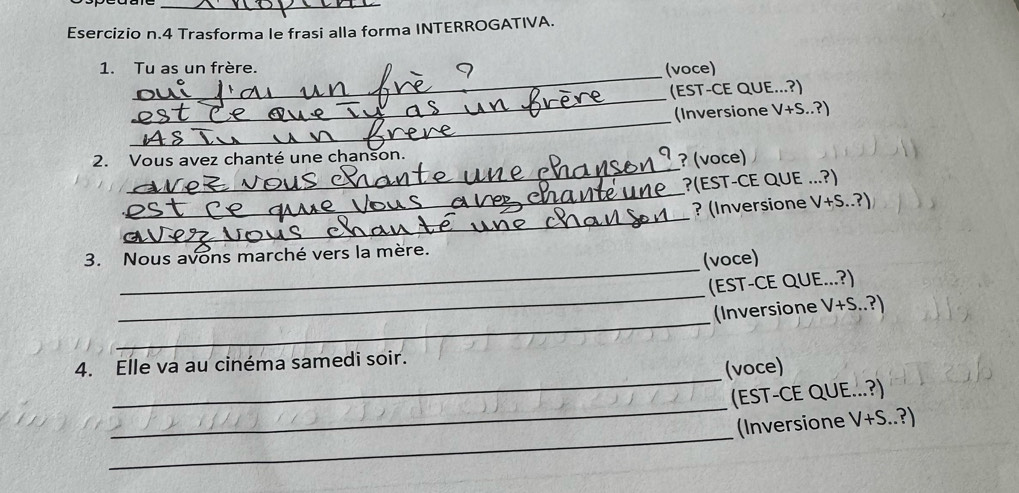 Esercizio n.4 Trasforma le frasi alla forma INTERROGATIVA.
1. Tu as un frère.
oui j'ai un frè ? (voce)
est ce que Tu as un frère (EST-CE QUE...?)
AS Tu un frere (Inversione V+S..?)
2. Vous avez chanté une chanson.
avez vous chante une chanson? ? (voce)
est ce que vous avez chanté une ?(EST-CE QUE ...?)
avez vous chanté une chanson ? (Inversione V+S..?)
3. Nous avons marché vers la mère.
(voce)
(EST-CE QUE...?)
(Inversione V+S..?)
4. Elle va au cinéma samedi soir.
(voce)
(EST-CE QUE...?)
(Inversione V+S..?)